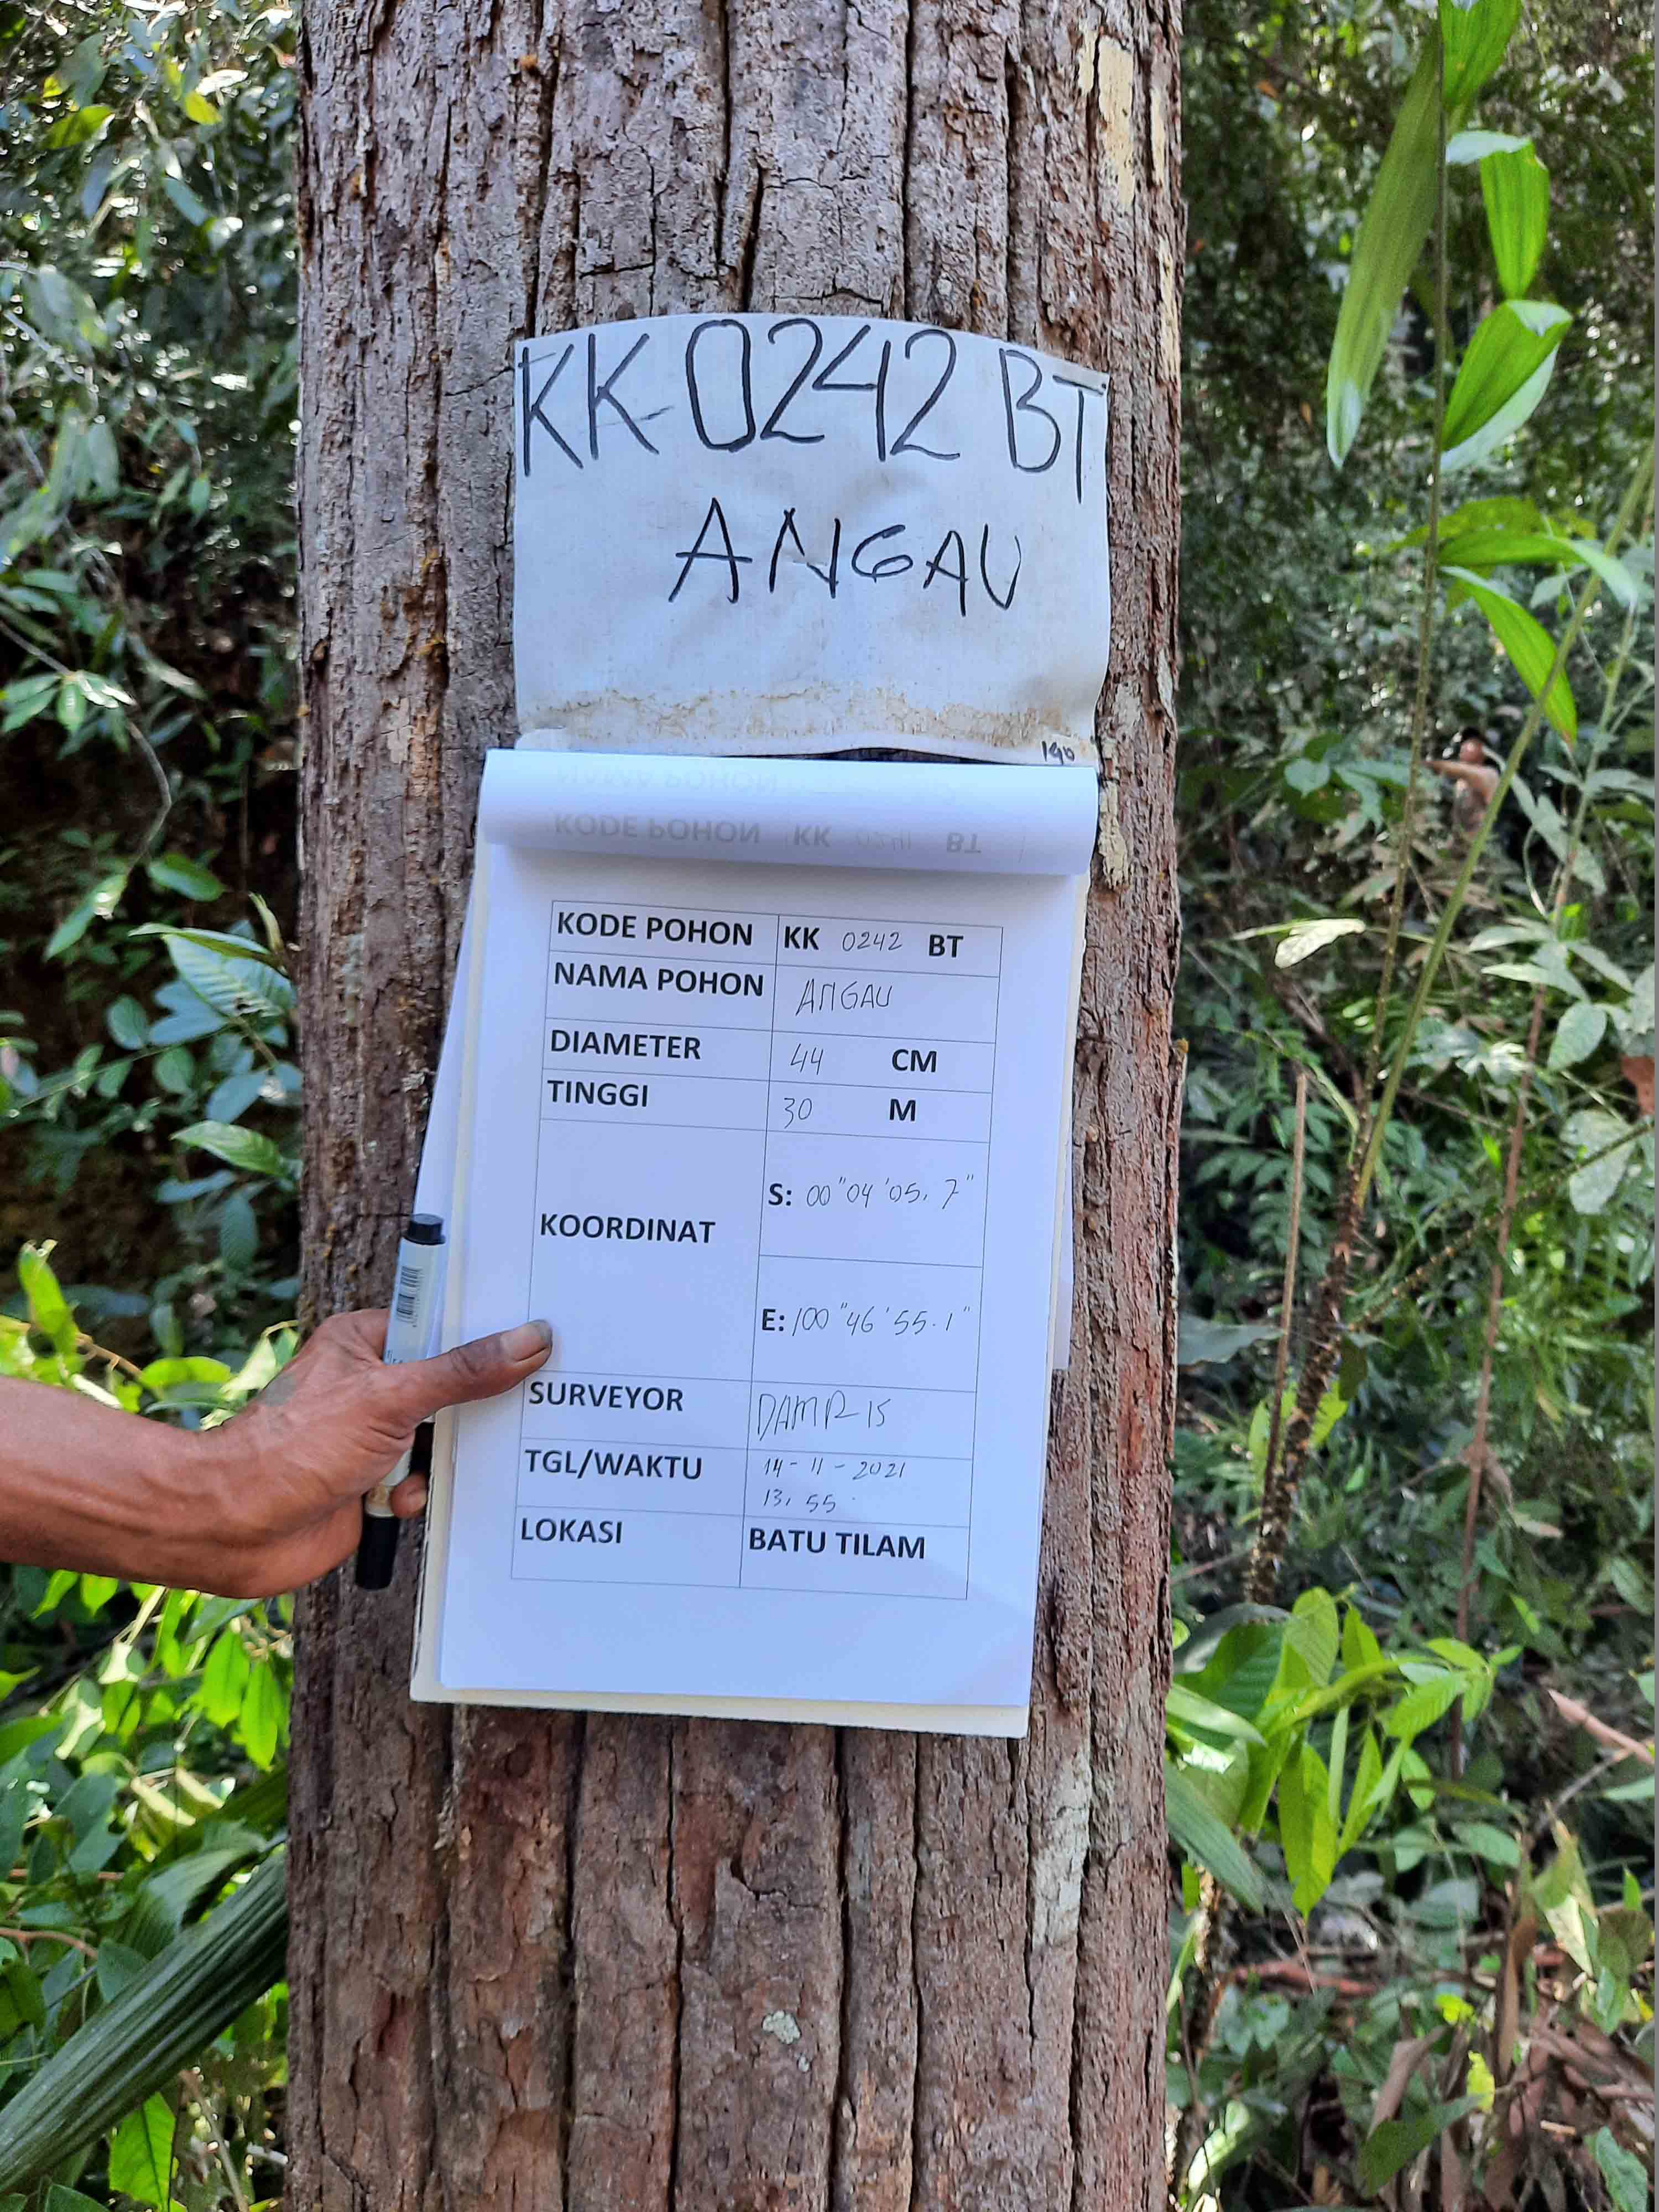 KK-0242 BT
ANGAU
190
KODE POHON KK 0242 BT
NAMA POHON ANGAU
DIAMETER 44 CM
TINGGI 30 M
KOORDINAT
S: 00"04'05,7"
E: 100"46'55.1"
SURVEYOR DAMRIS
TGL/WAKTU 14-11-2021
13,55
LOKASI BATU TILAM